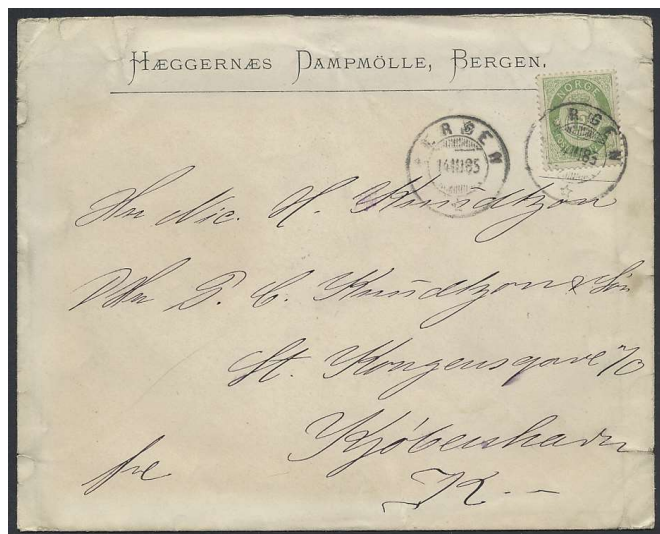 HÆGGERNÆS DAMPMÖLLE, BERGEN.
NORGE
BERGEN
14 III 85
BERGEN
Hr Nic. H. Knudtzon
P. C. Knudtzon & Søn
St. Kongensgade
Kjøbenhavn
fre K.